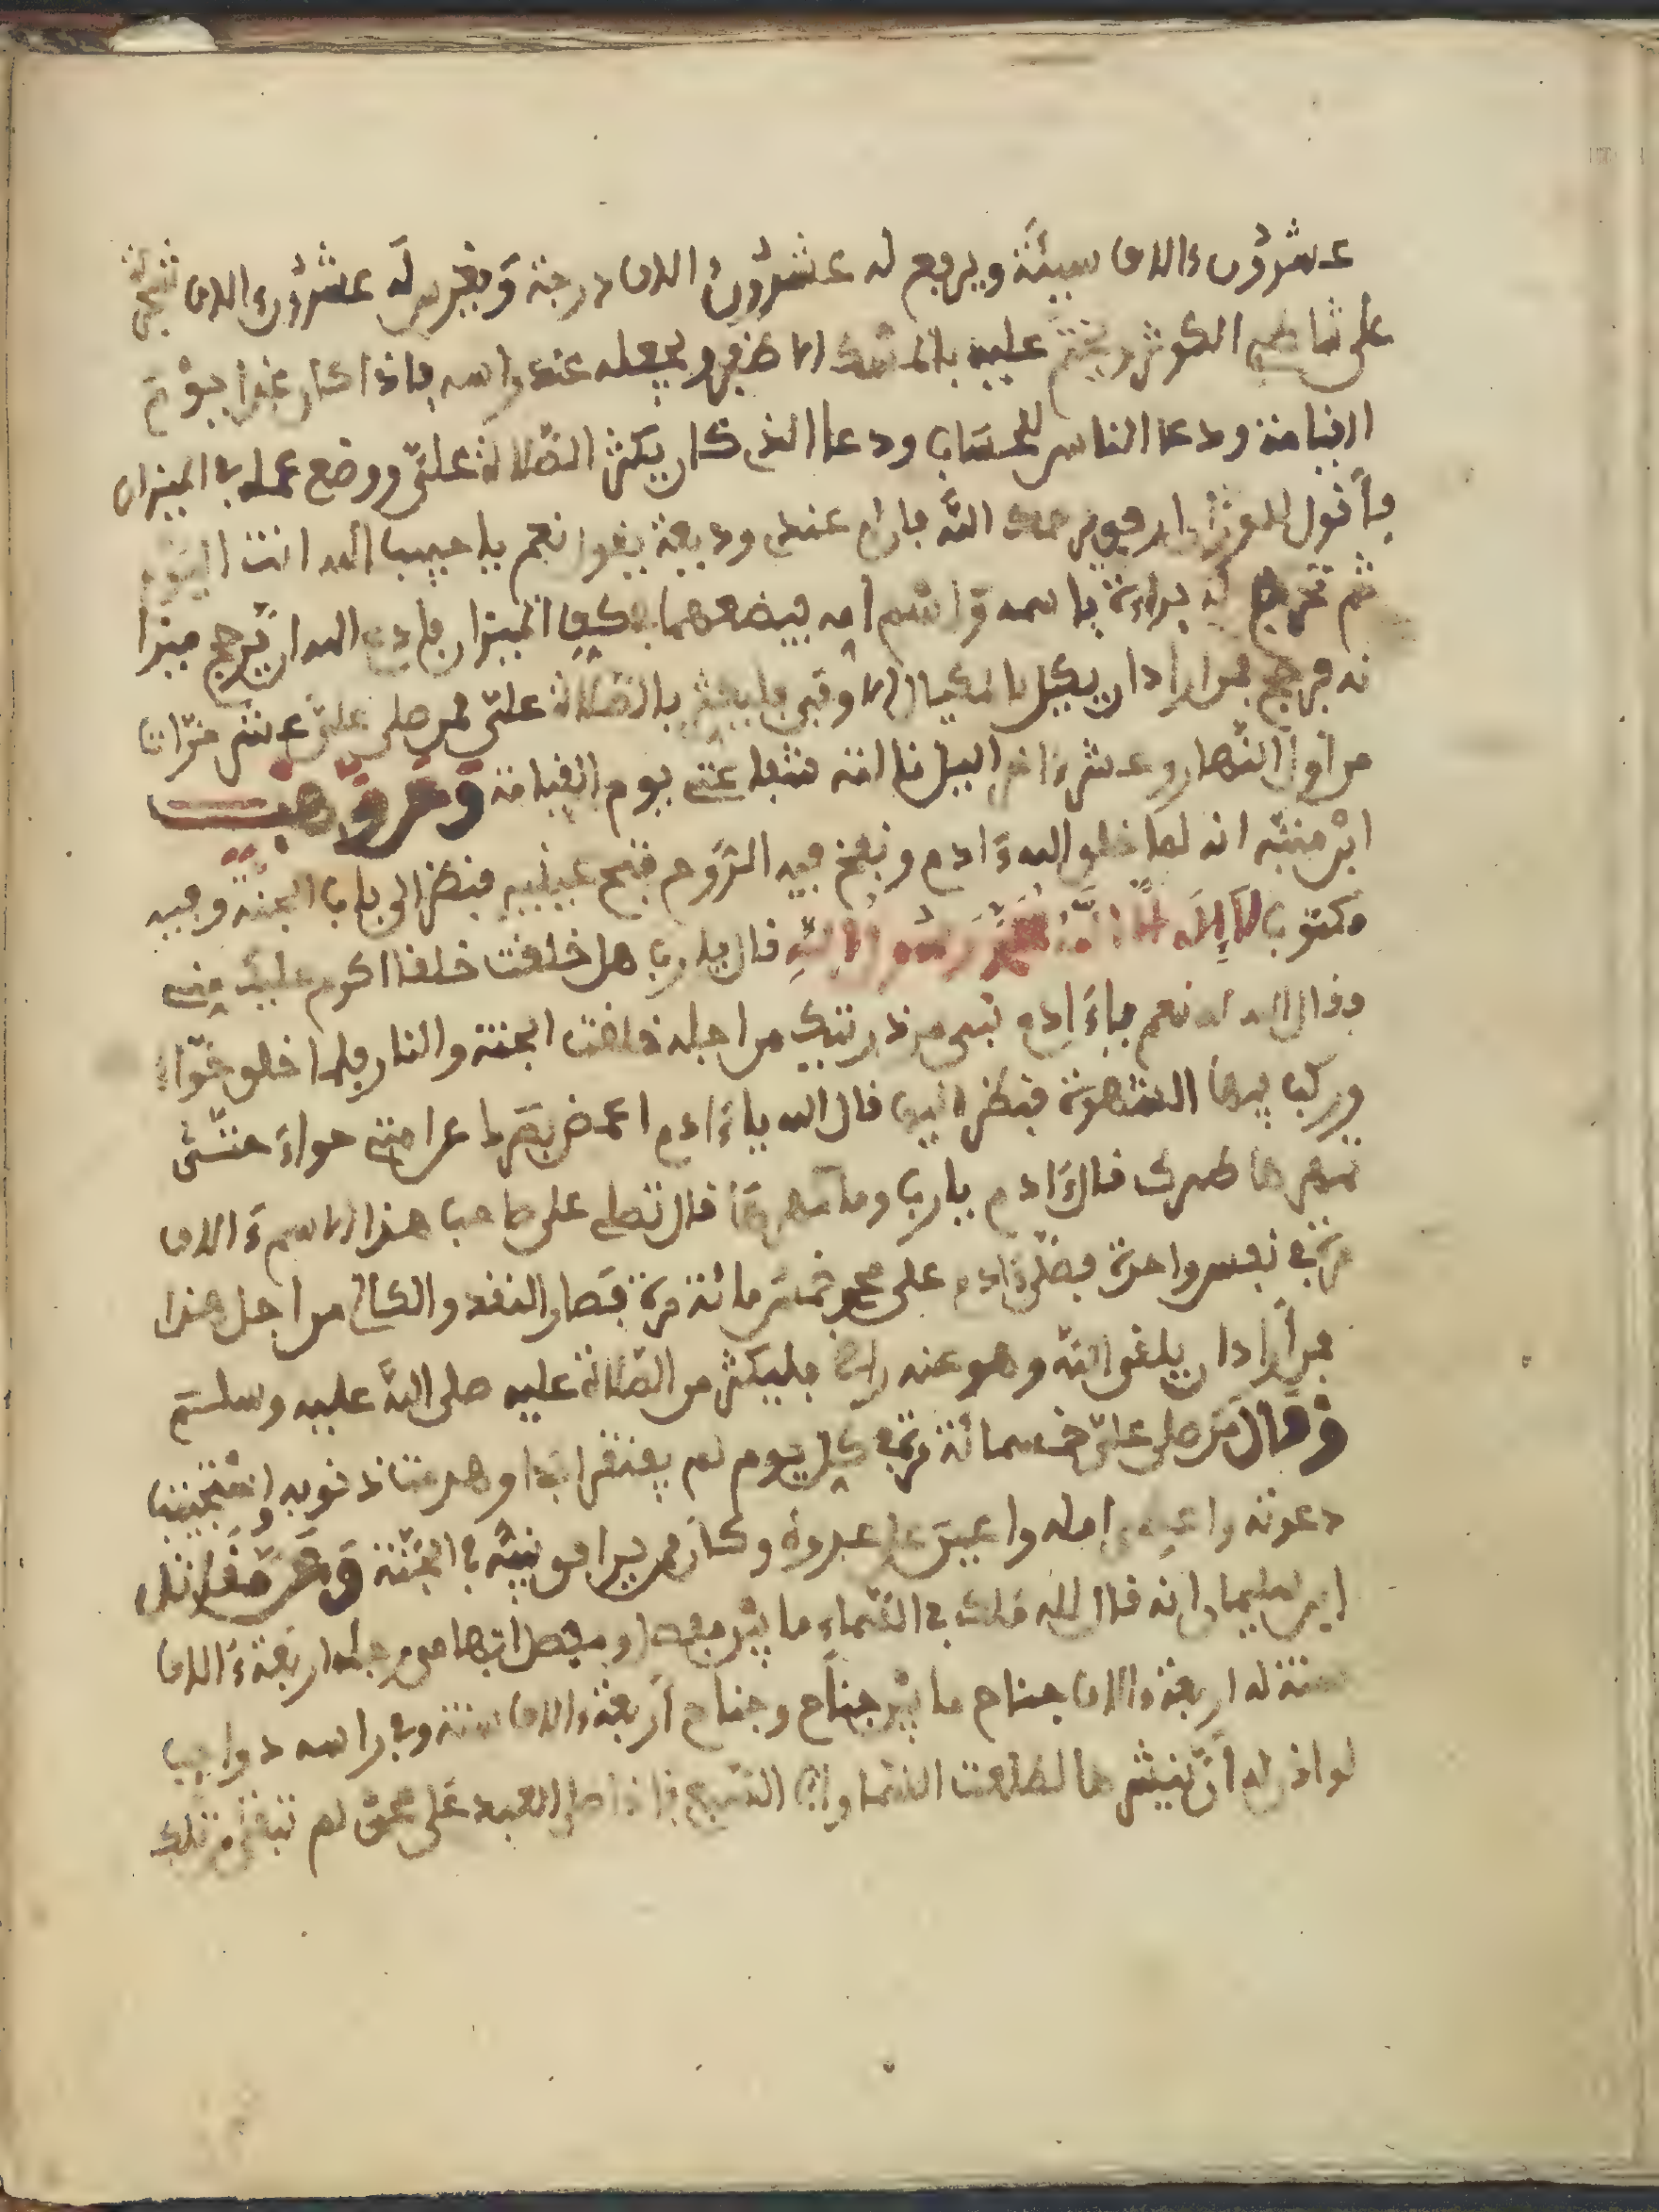 عشرون ءالاف سيئة ويرفع له عشرون ءالاف درجة ويغرس له عشرون ءالاف شجرة
على شاطئ الكوثر ويختم عليه بالمسك الاظفر ويجعله عند راسه فاذا كان غدا يوم
القيامة ودعا الناس للحساب ودعا الذى كان يكثر الصلاة علىّ ووضع عمله في الميزان
فأقول للوزان ارفق يرحمك الله فان له عندى وديعة يقول نعم يا حبيب الله انت اليوم
ثم تخرج له براءة باسمه واسم امه فيضعهما في كفة الميزان فاذن الله ان يرجح ميزا
نه فرجح فمن اراد ان يكيل بالمكيال الاوفى فليكثر بالصلاة علىّ فمن صلى علىّ عشر مرات
من اول النهار وعشر ءاخر اليل نا لته شفاعتى يوم القيامة وعن وهب
ابن منبه انه لما خلق الله ءادم ونفخ فيه الروح فتح عينيه فنظر الى باب الجنة وفيه
مكتوب لا إله الا الله محمد رسول الله قال يا رب هل خلقت خلقا اكرم عليك منى
فقال الله له نعم يا ءادم نبى من ذريتك من اجله خلقت الجنة والنار فلما خلق حواء
وركب فيها الشهوة فنظر اليها قال الله يا ءادم اغمض بصرك عن امتى حواء حتى
تمهرها مهرك قال ءادم يا رب وما مهرها قال تصلى على صاحب هذا الاسم ءالاف
مرة في نفس واحدة فصلى ءادم على محمد خمس مائة مرة فصار النقد والكالى من اجل هذا
فمن أراد ان يلقى الله وهو عنه راض فليكثر من الصلاة عليه صلى الله عليه وسلم
وقال من صلى علىّ خمسمائة مرة في كل يوم لم يفتقر ابدا وهدمت ذنوبه واستجيبت
دعوته واعطى امله واعين على عدوه وكان ممن يرافق نبيه في الجنة وعن مقاتل
ابن سليمان انه قال لله ملك في السماء ما بين مفصل ومفصل ابهام من رجله اربعة ءالاف
سنة له اربعة ءالاف جناح ما بين جناح وجناح اربعة ءالاف سنة وفي راسه دوايب
لو اذن له أن ينشرها لطلعت السماوات السبع فاذا صلى العبد على محمد لم تبق من تلك